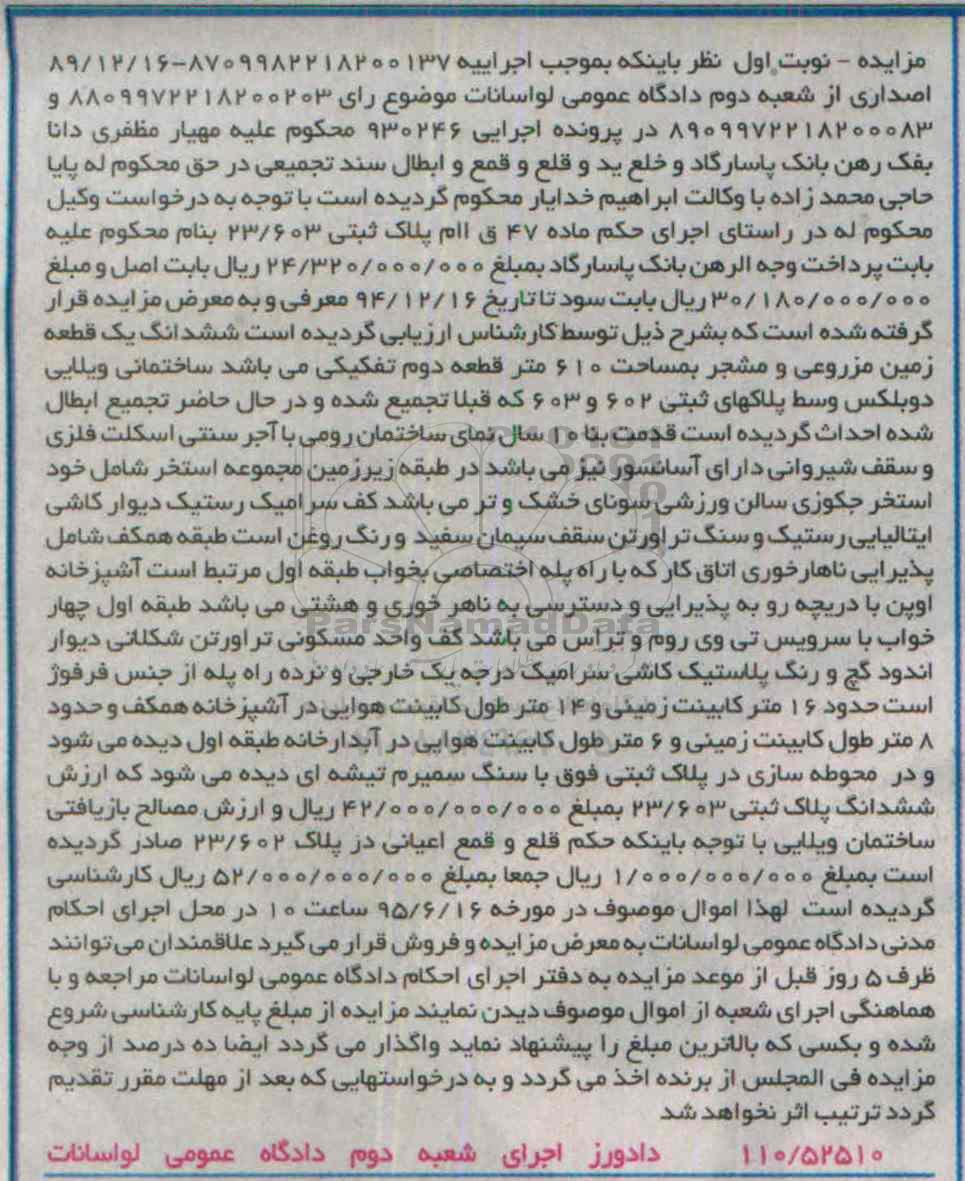 مزایده - نوبت اول نظر باینکه بموجب اجراییه ۸۷۰۹۹۸۲۲۱۸۲۰۰۱۳۷-۸۹/۱۲/۱۶
اصداری از شعبه دوم دادگاه عمومی لواسانات موضوع رای ۸۸۰۹۹۷۲۲۱۸۲۰۰۲۰۳ و
۸۹۰۹۹۷۲۲۱۸۲۰۰۰۸۳ در پرونده اجرایی ۹۳۰۲۴۶ محکوم علیه مهیار مظفری دانا
بفک رهن بانک پاسارگاد و خلع ید و قلع و قمع و ابطال سند تجمیعی در حق محکوم له پایا
حاجی محمد زاده با وکالت ابراهیم خدایار محکوم گردیده است با توجه به درخواست وکیل
محکوم له در راستای اجرای حکم ماده ۴۷ ق اام پلاک ثبتی ۲۳/۶۰۳ بنام محکوم علیه
بابت پرداخت وجه الرهن بانک پاسارگاد بمبلغ ۲۴/۳۲۰/۰۰۰/۰۰۰ ریال بابت اصل و مبلغ
۳۰/۱۸۰/۰۰۰/۰۰۰ ریال بابت سود تا تاریخ ۹۴/۱۲/۱۶ معرفی و به معرض مزایده قرار
گرفته شده است که بشرح ذیل توسط کارشناس ارزیابی گردیده است ششدانگ یک قطعه
زمین مزروعی و مشجر بمساحت ۶۱۰ متر قطعه دوم تفکیکی می باشد ساختمانی ویلایی
دوبلکس وسط پلاکهای ثبتی ۶۰۲ و ۶۰۳ که قبلا تجمیع شده و در حال حاضر تجمیع ابطال
شده احداث گردیده است قدمت بنا ۱۰ سال نمای ساختمان رومی با آجر سنتی اسکلت فلزی
و سقف شیروانی دارای آسانسور نیز می باشد در طبقه زیرزمین مجموعه استخر شامل خود
استخر جکوزی سالن ورزشی سونای خشک و تر می باشد کف سرامیک رستیک دیوار کاشی
ایتالیایی رستیک و سنگ تراورتن سقف سیمان سفید و رنگ روغن است طبقه همکف شامل
پذیرایی ناهارخوری اتاق کار که با راه پله اختصاصی بخواب طبقه اول مرتبط است آشپزخانه
اوپن با دریچه رو به پذیرایی و دسترسی به ناهر خوری و هشتی می باشد طبقه اول چهار
خواب با سرویس تی وی روم و تراس می باشد کف واحد مسکونی تراورتن شکلاتی دیوار
اندود گچ و رنگ پلاستیک کاشی سرامیک درجه یک خارجی و نرده راه پله از جنس فرفوژ
است حدود ۱۶ متر کابینت زمینی و ۱۴ متر طول کابینت هوایی در آشپزخانه همکف و حدود
۸ متر طول کابینت زمینی و ۶ متر طول کابینت هوایی در آبدارخانه طبقه اول دیده می شود
و در محوطه سازی در پلاک ثبتی فوق با سنگ سمیرم تیشه ای دیده می شود که ارزش
ششدانگ پلاک ثبتی ۲۳/۶۰۳ بمبلغ ۴۲/۰۰۰/۰۰۰/۰۰۰ ریال و ارزش مصالح بازیافتی
ساختمان ویلایی با توجه باینکه حکم قلع و قمع اعیانی در پلاک ۲۳/۶۰۲ صادر گردیده
است بمبلغ ۱/۰۰۰/۰۰۰/۰۰۰ ریال جمعا بمبلغ ۵۲/۰۰۰/۰۰۰/۰۰۰ ریال کارشناسی
گردیده است لهذا اموال موصوف در مورخه ۹۵/۶/۱۶ ساعت ۱۰ در محل اجرای احکام
مدنی دادگاه عمومی لواسانات به معرض مزایده و فروش قرار می گیرد علاقمندان می توانند
ظرف ۵ روز قبل از موعد مزایده به دفتر اجرای احکام دادگاه عمومی لواسانات مراجعه و با
هماهنگی اجرای شعبه از اموال موصوف دیدن نمایند مزایده از مبلغ پایه کارشناسی شروع
شده و بکسی که بالاترین مبلغ را پیشنهاد نماید واگذار می گردد ایضا ده درصد از وجه
مزایده فی المجلس از برنده اخذ می گردد و به درخواستهایی که بعد از مهلت مقرر تقدیم
گردد ترتیب اثر نخواهد شد
۱۱۰/۵۲۵۱۰ دادورز اجرای شعبه دوم دادگاه عمومی لواسانات
ParsNamadData